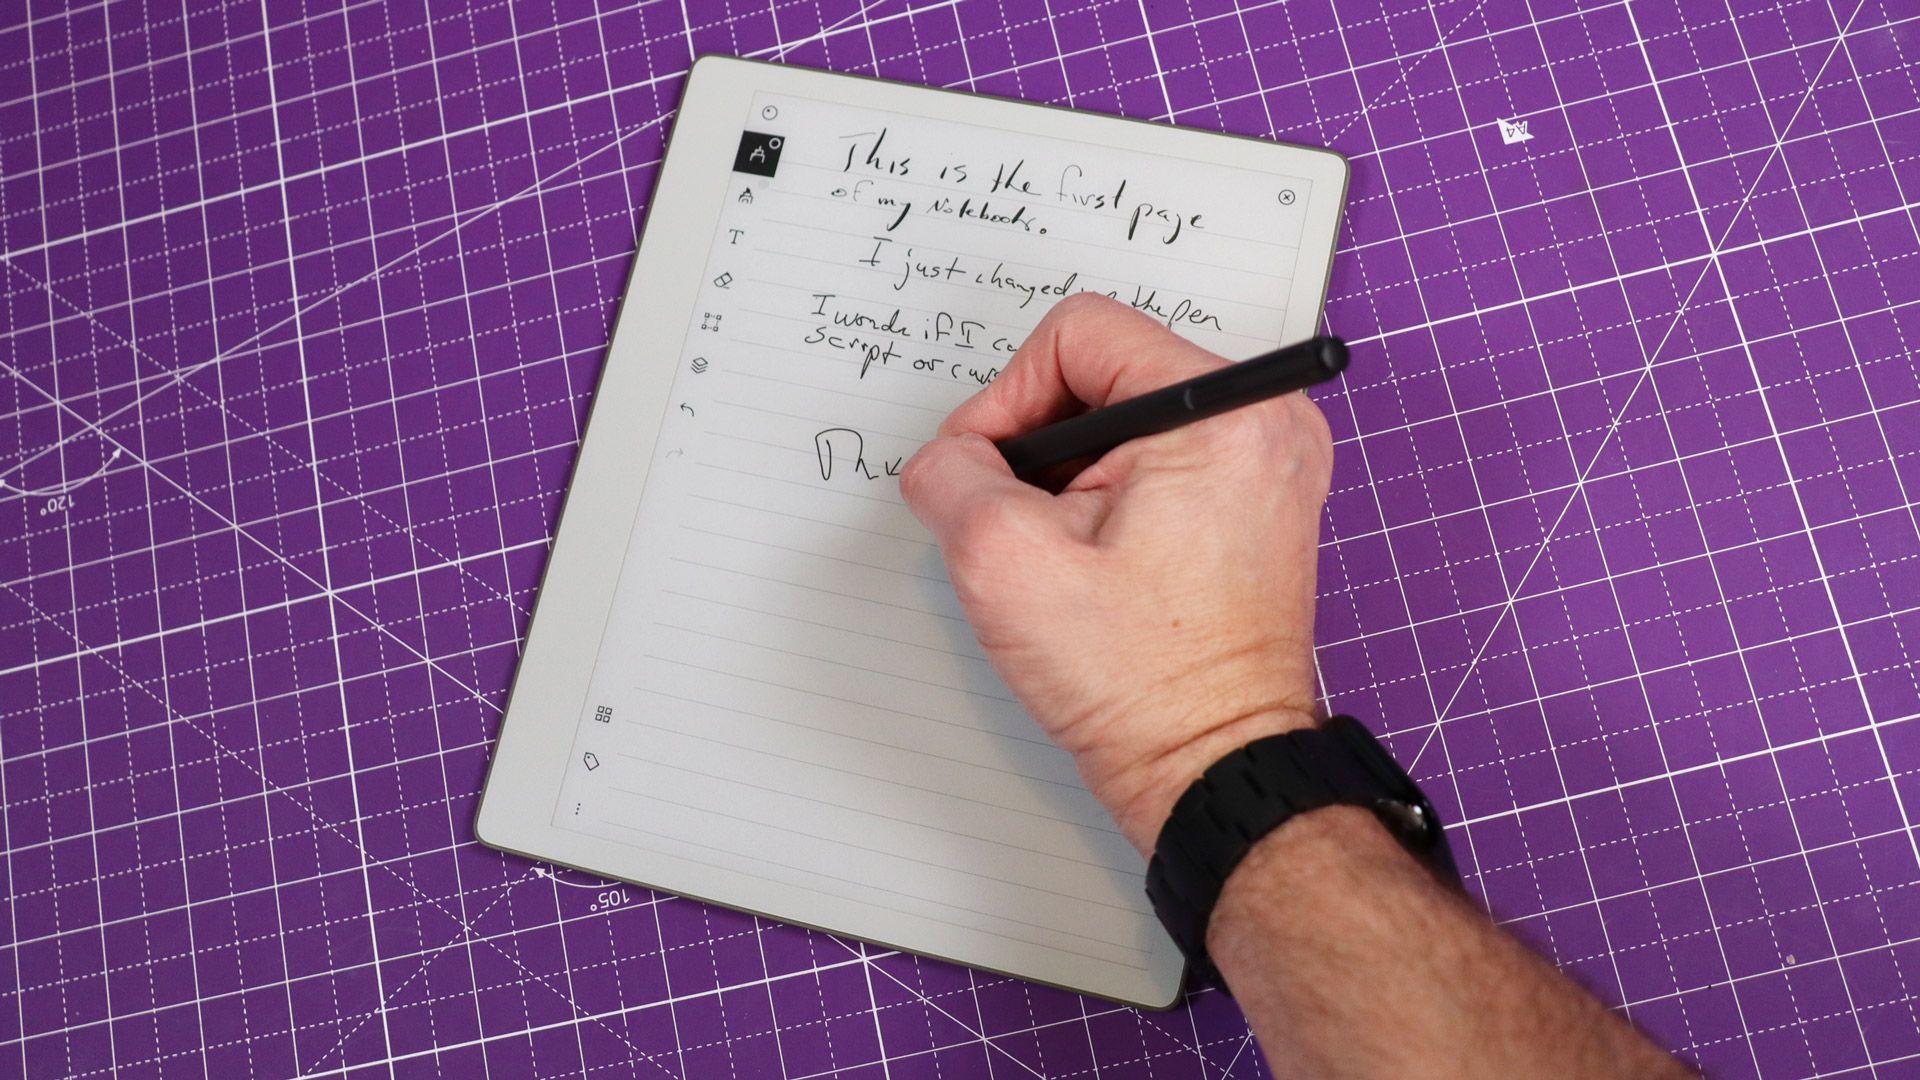 This is the first page
of my Notebook.
I just changed the pen
I wonde if I
script or
T
A4
120°
105°